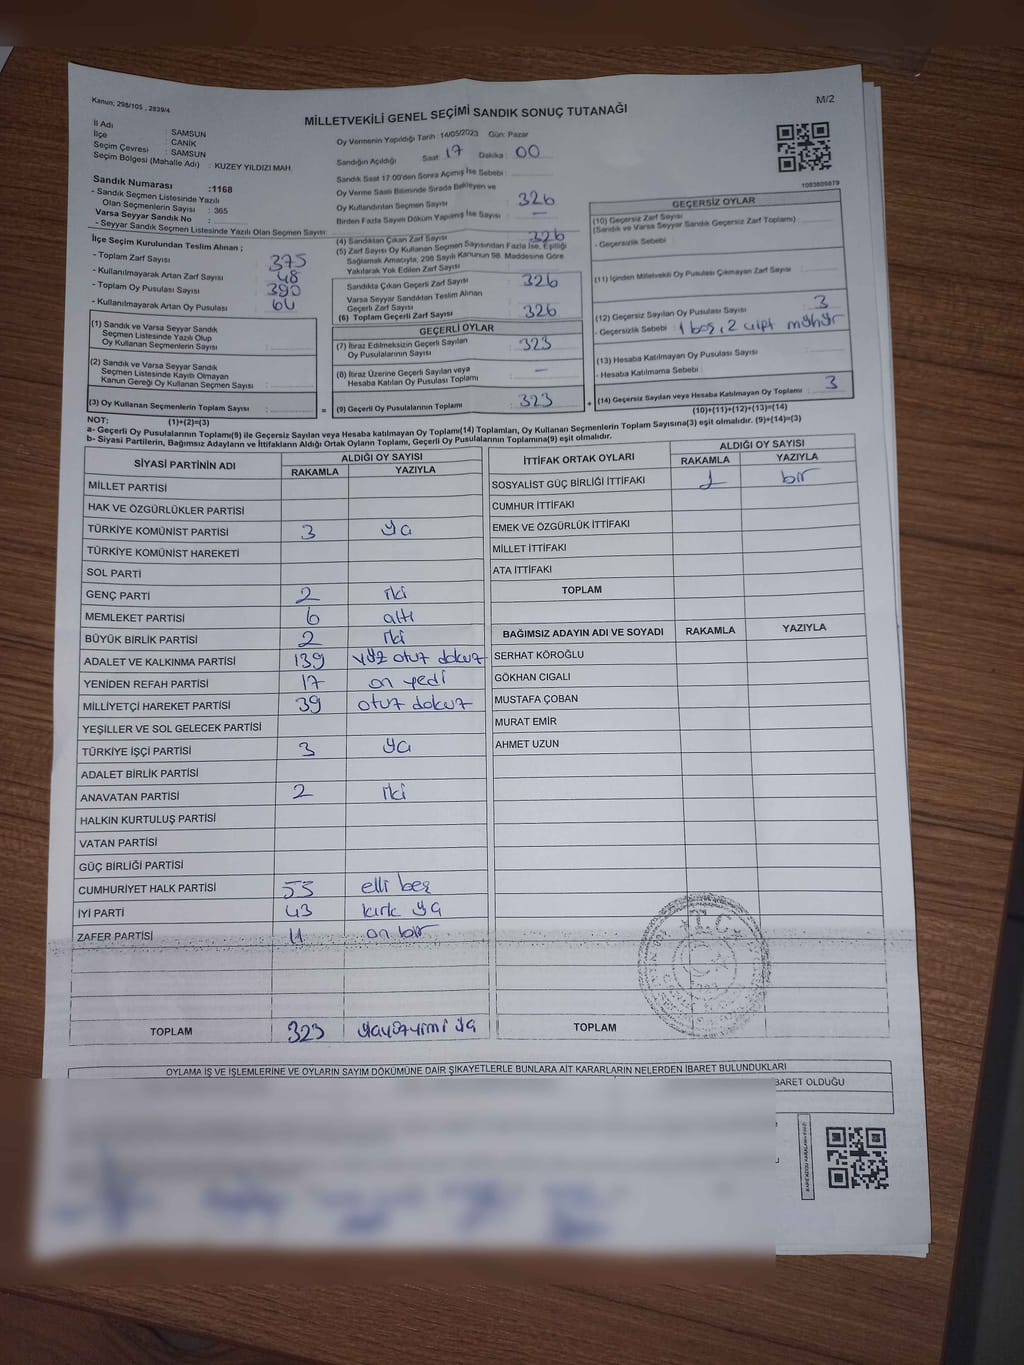 Kanun; 298/105 , 2839/4
MİLLETVEKİLİ GENEL SEÇİMİ SANDIK SONUÇ TUTANAĞI
M/2
İl Adı : SAMSUN
İlçe : CANİK
Seçim Çevresi : SAMSUN
Seçim Bölgesi (Mahalle Adı) : KUZEY YILDIZI MAH.
Sandık Numarası :1168
- Sandık Seçmen Listesinde Yazılı
Olan Seçmenlerin Sayısı : 365
Varsa Seyyar Sandık No :
- Seyyar Sandık Seçmen Listesinde Yazılı Olan Seçmen Sayısı:
İlçe Seçim Kurulundan Teslim Alınan ;
- Toplam Zarf Sayısı 375
- Kullanılmayarak Artan Zarf Sayısı 48
- Toplam Oy Pusulası Sayısı 390
- Kullanılmayarak Artan Oy Pusulası 64
(1) Sandık ve Varsa Seyyar Sandık
Seçmen Listesinde Yazılı Olup
Oy Kullanan Seçmenlerin Sayısı :
(2) Sandık ve Varsa Seyyar Sandık
Seçmen Listesinde Kayıtlı Olmayan
Kanun Gereği Oy Kullanan Seçmen Sayısı :
(3) Oy Kullanan Seçmenlerin Toplam Sayısı :
(1)+(2)=(3)
Oy Vermenin Yapıldığı Tarih : 14/05/2023 Gün: Pazar
Sandığın Açıldığı Saat : 17 Dakika : 00
Sandık Saat 17:00'den Sonra Açılmış İse Sebebi :
Oy Verme Saati Bitiminde Sırada Bekleyen ve
Oy Kullandırılan Seçmen Sayısı 326
Birden Fazla Sayım Döküm Yapılmış İse Sayısı : —
(4) Sandıktan Çıkan Zarf Sayısı 326
(5) Zarf Sayısı Oy Kullanan Seçmen Sayısından Fazla İse, Eşitliği
Sağlamak Amacıyla, 298 Sayılı Kanunun 98. Maddesine Göre
Yakılarak Yok Edilen Zarf Sayısı :
Sandıkta Çıkan Geçerli Zarf Sayısı : 326
Varsa Seyyar Sandıktan Teslim Alınan
Geçerli Zarf Sayısı :
(6) Toplam Geçerli Zarf Sayısı : 326
GEÇERLİ OYLAR
(7) İtiraz Edilmeksizin Geçerli Sayılan
Oy Pusulalarının Sayısı : 323
(8) İtiraz Üzerine Geçerli Sayılan veya
Hesaba Katılan Oy Pusulası Toplamı : —
= (9) Geçerli Oy Pusulalarının Toplamı : 323 +
1083605879
GEÇERSİZ OYLAR
(10) Geçersiz Zarf Sayısı
(Sandık ve Varsa Seyyar Sandık Geçersiz Zarf Toplamı) :
- Geçersizlik Sebebi :
(11) İçinden Milletvekili Oy Pusulası Çıkmayan Zarf Sayısı :
(12) Geçersiz Sayılan Oy Pusulası Sayısı : 3
- Geçersizlik Sebebi : 1 boş, 2 çift mühür
(13) Hesaba Katılmayan Oy Pusulası Sayısı :
- Hesaba Katılmama Sebebi :
(14) Geçersiz Sayılan veya Hesaba Katılmayan Oy Toplamı : 3
(10)+(11)+(12)+(13)=(14)
NOT:
a- Geçerli Oy Pusulalarının Toplamı(9) ile Geçersiz Sayılan veya Hesaba katılmayan Oy Toplamı(14) Toplamları, Oy Kullanan Seçmenlerin Toplam Sayısına(3) eşit olmalıdır. (9)+(14)=(3)
b- Siyasi Partilerin, Bağımsız Adayların ve İttifakların Aldığı Ortak Oyların Toplamı, Geçerli Oy Pusulalarının Toplamına(9) eşit olmalıdır.
SİYASİ PARTİNİN ADI ALDIĞI OY SAYISI
RAKAMLA YAZIYLA
MİLLET PARTİSİ
HAK VE ÖZGÜRLÜKLER PARTİSİ
TÜRKİYE KOMÜNİST PARTİSİ 3 üç
TÜRKİYE KOMÜNİST HAREKETİ
SOL PARTİ
GENÇ PARTİ 2 iki
MEMLEKET PARTİSİ 6 altı
BÜYÜK BİRLİK PARTİSİ 2 iki
ADALET VE KALKINMA PARTİSİ 139 yüz otuz dokuz
YENİDEN REFAH PARTİSİ 17 on yedi
MİLLİYETÇİ HAREKET PARTİSİ 39 otuz dokuz
YEŞİLLER VE SOL GELECEK PARTİSİ
TÜRKİYE İŞÇİ PARTİSİ 3 üç
ADALET BİRLİK PARTİSİ
ANAVATAN PARTİSİ 2 iki
HALKIN KURTULUŞ PARTİSİ
VATAN PARTİSİ
GÜÇ BİRLİĞİ PARTİSİ
CUMHURİYET HALK PARTİSİ 55 elli beş
İYİ PARTİ 43 kırk üç
ZAFER PARTİSİ 11 on bir
TOPLAM 323 üçyüzyirmi üç
İTTİFAK ORTAK OYLARI ALDIĞI OY SAYISI
RAKAMLA YAZIYLA
SOSYALİST GÜÇ BİRLİĞİ İTTİFAKI 1 bir
CUMHUR İTTİFAKI
EMEK VE ÖZGÜRLÜK İTTİFAKI
MİLLET İTTİFAKI
ATA İTTİFAKI
TOPLAM
BAĞIMSIZ ADAYIN ADI VE SOYADI RAKAMLA YAZIYLA
SERHAT KÖROĞLU
GÖKHAN CIGALI
MUSTAFA ÇOBAN
MURAT EMİR
AHMET UZUN
TOPLAM
OYLAMA İŞ VE İŞLEMLERİNE VE OYLARIN SAYIM DÖKÜMÜNE DAİR ŞİKAYETLERLE BUNLARA AİT KARARLARIN NELERDEN İBARET BULUNDUKLARI
BARET OLDUĞU